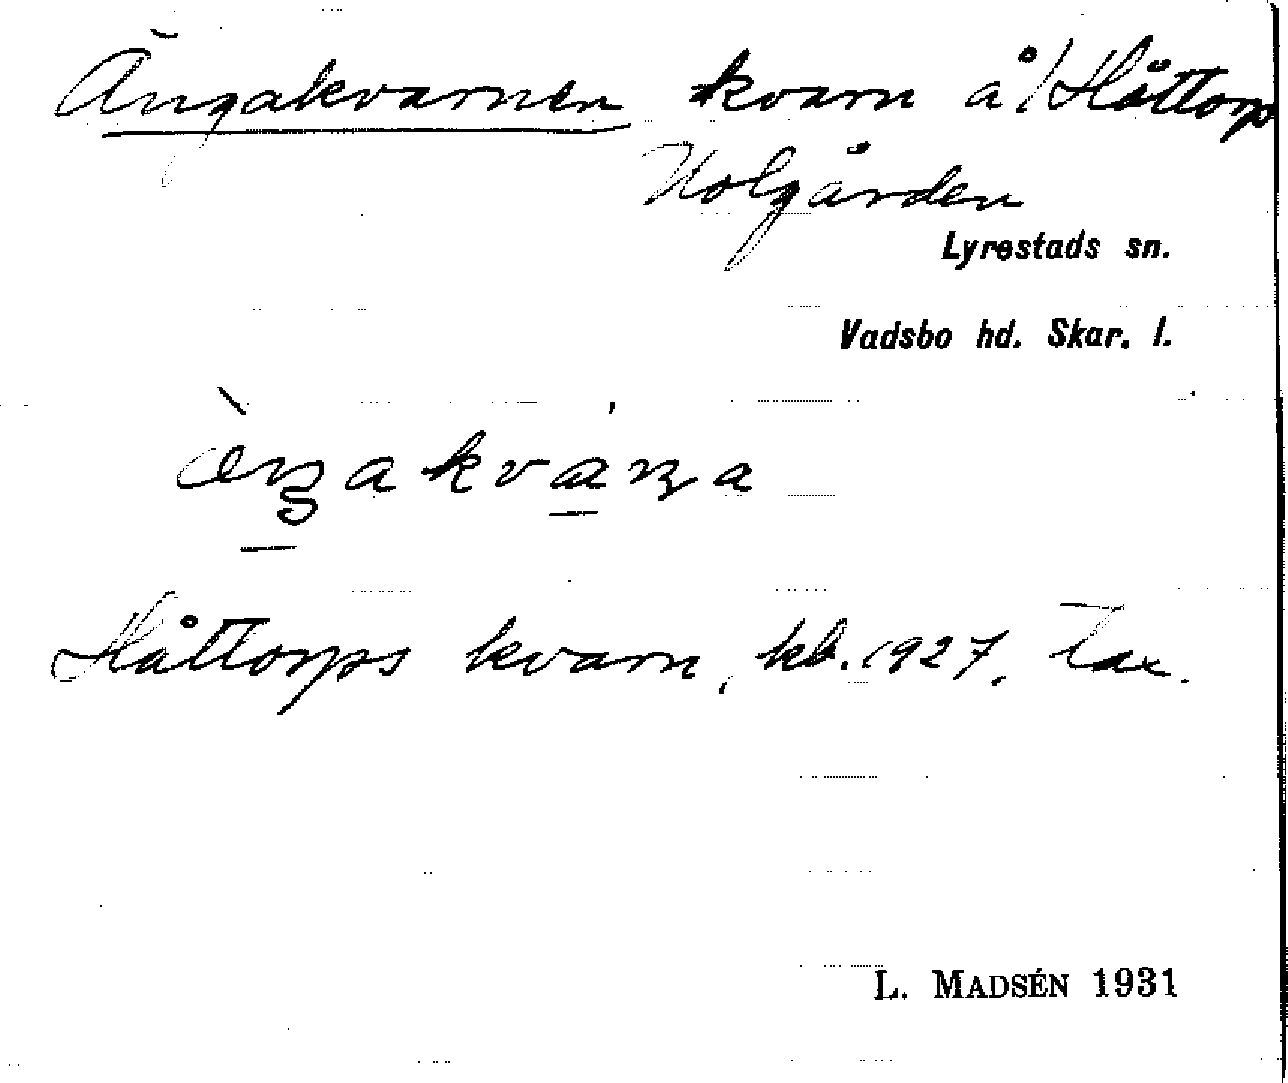 Ängakvarnen kvarn å/Håttorp
Holgården
Lyrestads sn.
Vadsbo hd. Skar. l.
Håttorps kvarn, kb. 1927, Tax.
L. MADSÉN 1931